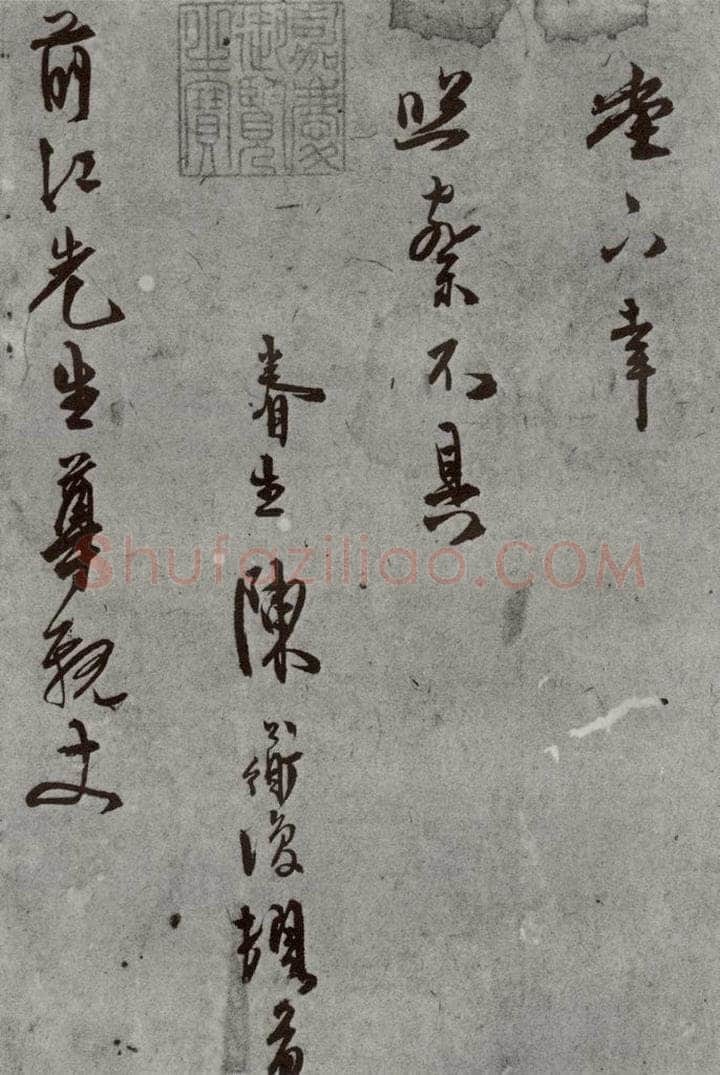 堂六幸
照察不具
眷生陳衡復頓首
前江先生尊親丈
嘉慶
御覽
之寶
Shufaziliao.COM